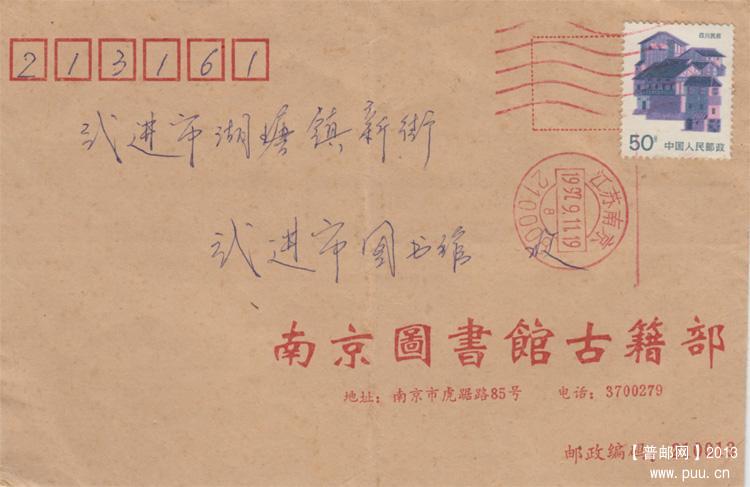 213161
四川民居
50分 中国人民邮政
江苏南京
1997.9.11.19
8
武进市湖塘镇新街
武进市图书馆 收
南京圖書館古籍部
地址：南京市虎踞路85号 电话：3700279
邮政编码：210013
【普邮网】2013
www.puu.cn